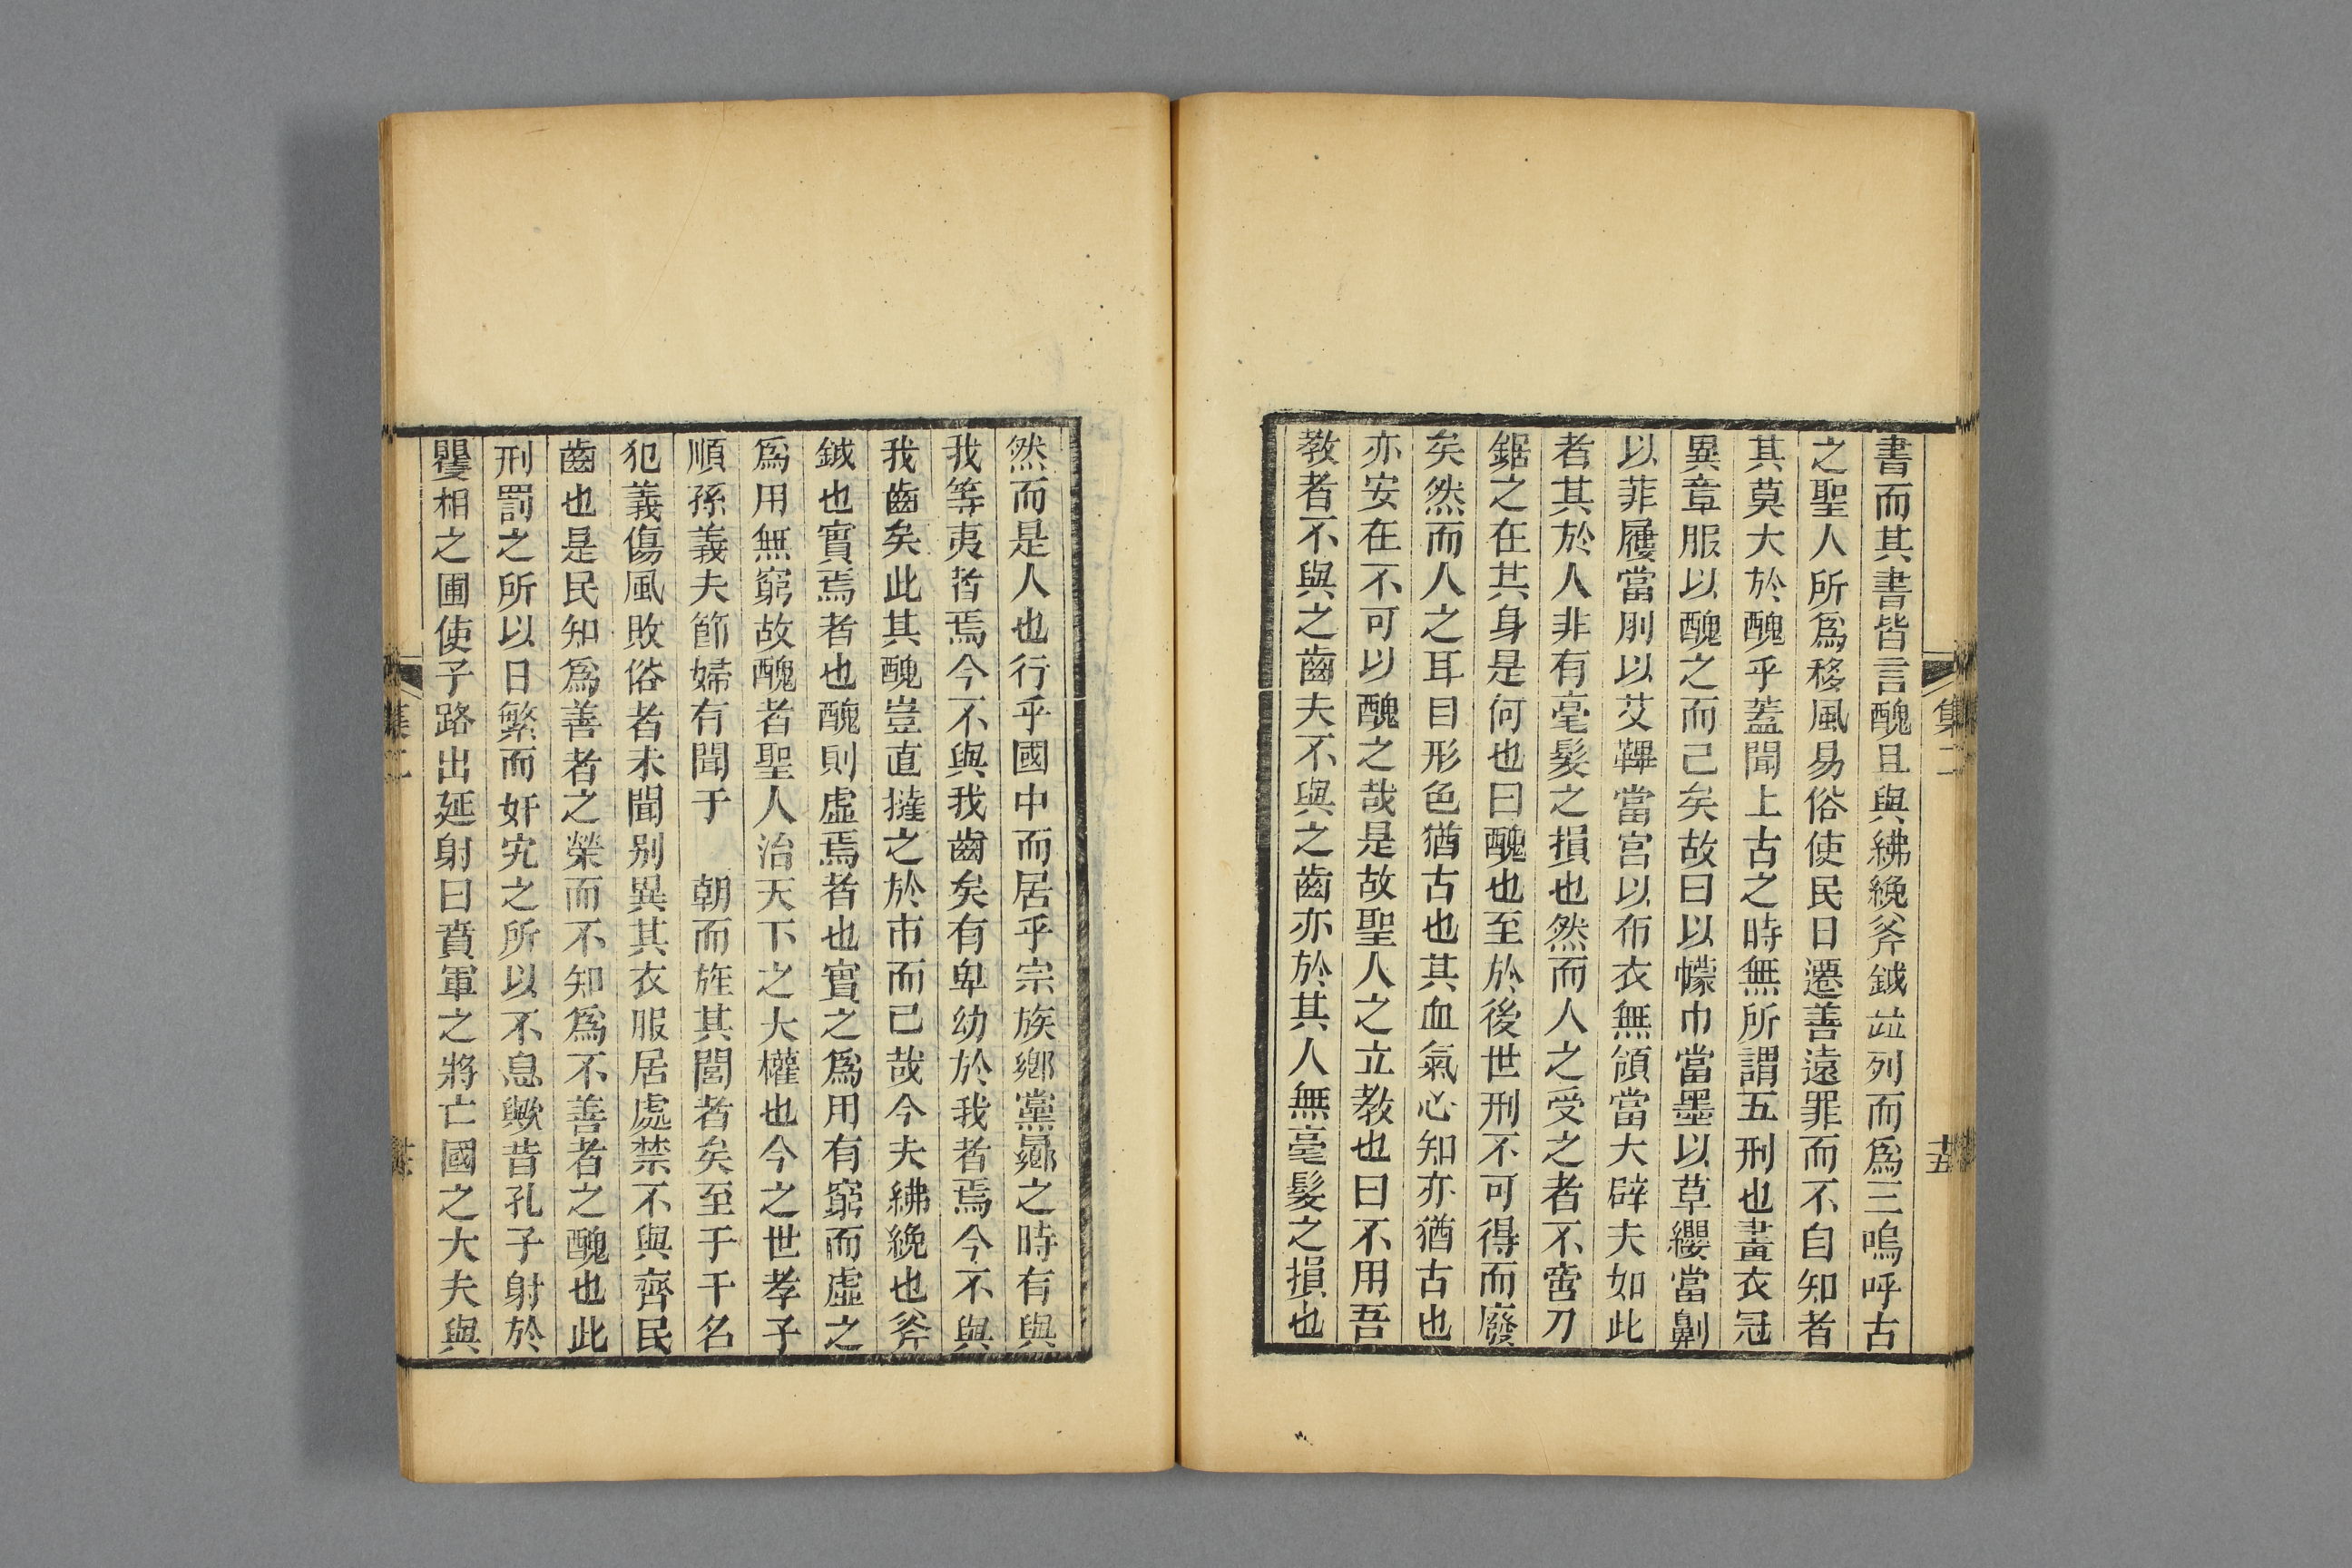 集二
十五
書而其書皆言醜且與紼絻斧鉞並列而爲三嗚呼古
之聖人所爲移風易俗使民日遷善遠罪而不自知者
其莫大於醜乎蓋聞上古之時無所謂五刑也畫衣冠
異章服以醜之而已矣故曰以幪巾當墨以草纓當劓
以菲履當刖以艾鞸當宮以布衣無領當大辟夫如此
者其於人非有毫髮之損也然而人之受之者不啻刀
鋸之在其身是何也曰醜也至於後世刑不可得而廢
矣然而人之耳目形色猶古也其血氣心知亦猶古也
亦安在不可以醜之哉是故聖人之立教也曰不用吾
教者不與之齒夫不與之齒亦於其人無毫髮之損也
然而是人也行乎國中而居乎宗族鄉黨曏之時有與
我等夷者焉今不與我齒矣有卑幼於我者焉今不與
我齒矣此其醜豈直撻之於市而已哉今夫紼絻也斧
鉞也實焉者也醜則虛焉者也實之爲用有窮而虛之
爲用無窮故醜者聖人治天下之大權也今之世孝子
順孫義夫節婦有聞于 朝而旌其閭者矣至于干名
犯義傷風敗俗者未聞別異其衣服居處禁不與齊民
齒也是民知爲善者之榮而不知爲不善者之醜也此
刑罰之所以日繁而奸宄之所以不息歟昔孔子射於
矍相之圃使子路出延射曰賁軍之將亡國之大夫與
集二